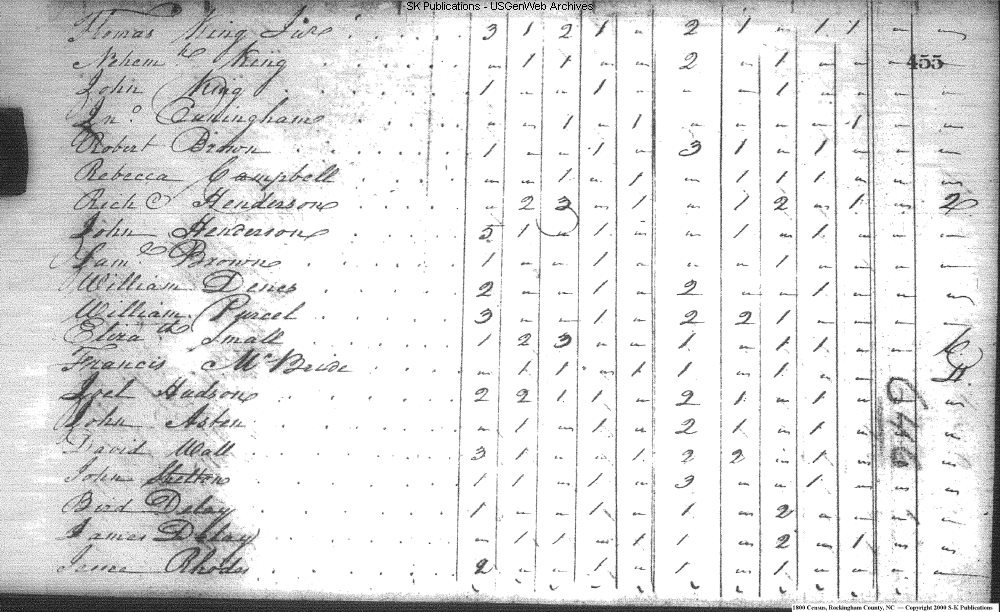 SK Publications - USGenWeb Archives
Thomas King Jur 3 1 2 1 " 2 1 " 1 1 " "
Nehemh King " 1 1 " " 2 " 1 " " "
455
John King 1 " " 1 " " " 1 " " " "
Jno. Cuningham " " 1 " 1 " " " " 1 " "
Robert Brown 1 " " 1 " 3 1 " 1 " " "
Rebecca Campbell " " 1 " 1 " 1 1 1 " " "
Richd Henderson " 2 3 " 1 " 1 2 " 1 " 2
John Henderson 5 1 " 1 " " 1 " 1 " " "
Saml Brown 1 " " 1 " " " 1 " " " "
William Denes 2 " " 1 " 2 " " 1 " " "
William Purcel 3 " " 1 " 2 2 1 " " " "
Elizath Small 1 2 3 " " 1 " 1 1 " "
Francis McBride " 1 1 " 1 1 " 1 " " "
Joel Hudson 2 2 1 1 " 2 1 " 1 " " "
John Asten " 1 " 1 " 2 1 " 1 " " "
David Wall 3 1 " " 1 2 2 " 1 " " "
John Shelton 1 1 " 1 " 3 " " 1 " " "
Bird Delay 1 " " 1 " 1 " 2 " " " "
James Delay " 1 1 " 1 1 " 2 " 1 " "
Rhodes 2 " " 1 " 1 " 1 " " " "
1800 Census, Rockingham County, NC — Copyright 2000 S-K Publications